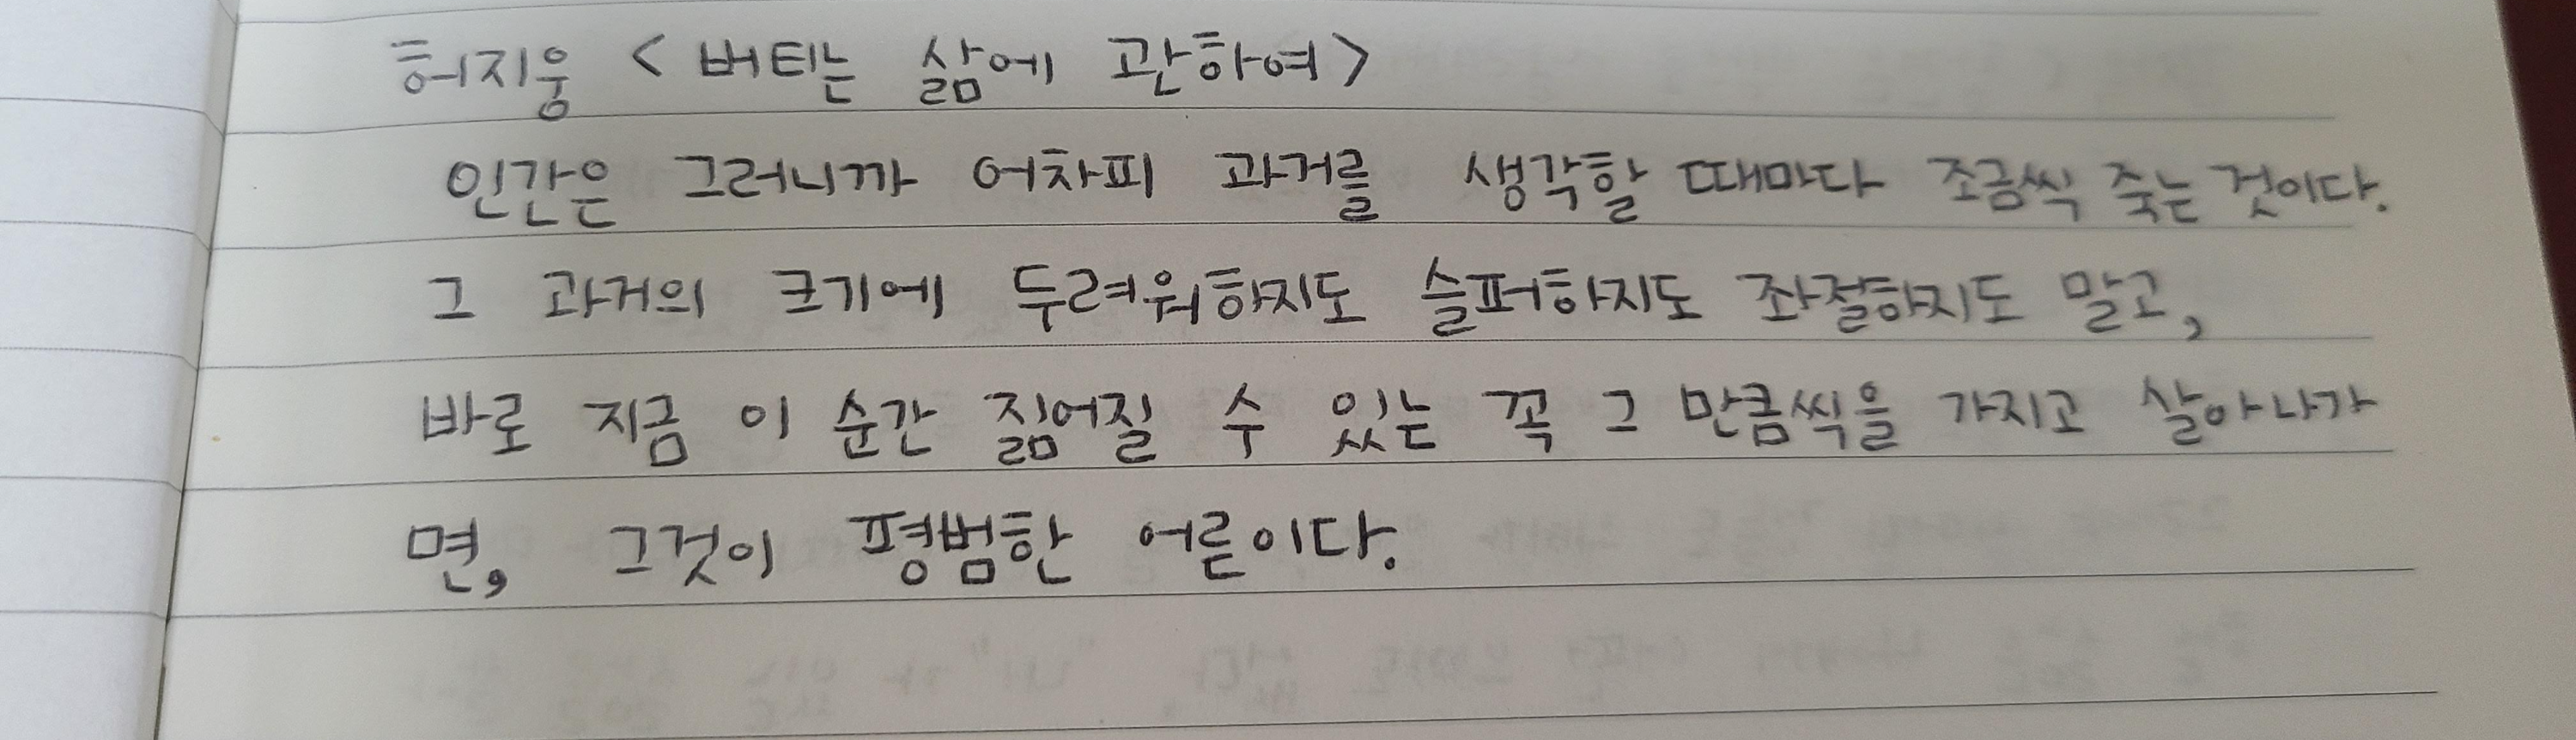 허지웅 < 버티는 삶에 관하여>
인간은 그러니까 어차피 과거를 생각할 때마다 조금씩 죽는 것이다.
그 과거의 크기에 두려워하지도 슬퍼하지도 좌절하지도 말고,
바로 지금 이 순간 짊어질 수 있는 꼭 그 만큼씩을 가지고 살아나가
면, 그것이 평범한 어른이다.